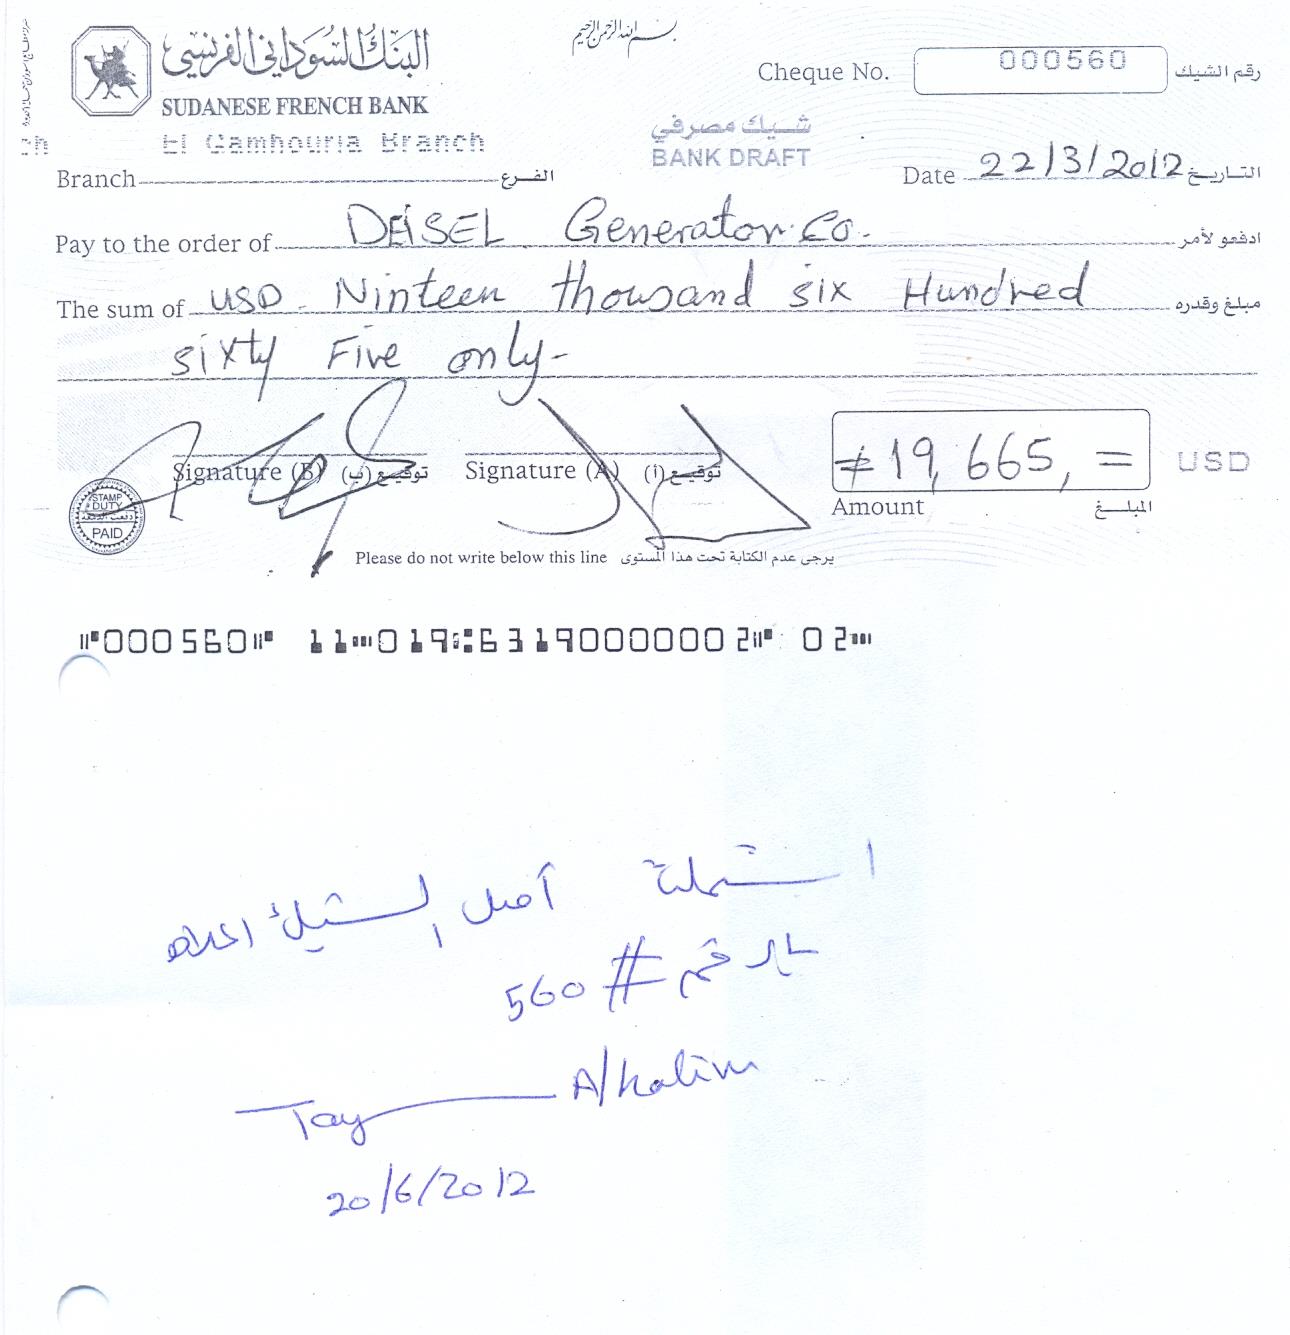 بسم الله الرحمن الرحيم
البنك السوداني الفرنسي
SUDANESE FRENCH BANK
El Gamhouria Branch
Cheque No. 000560 رقم الشيك
شيك مصرفي
BANK DRAFT
Branch الفرع
Date 22/3/2012 التاريخ
Pay to the order of DEISEL Generator Co. ادفعو لأمر
The sum of USD Ninteen thousand six Hundred مبلغ وقدره
sixty Five only-
Signature (B) توقيع (ب) Signature (A) توقيع (أ)
≠19,665,= USD
Amount المبلغ
STAMP
DUTY
دفعت الدمغة
PAID
Please do not write below this line يرجى عدم الكتابة تحت هذا المستوى
⑈000560⑈ 11⑉019⑆6319000000 2⑈ 02⑉
استملت أصل الشيك اعلاه
بالرقم # 560
Tay Alkalim
20/6/2012